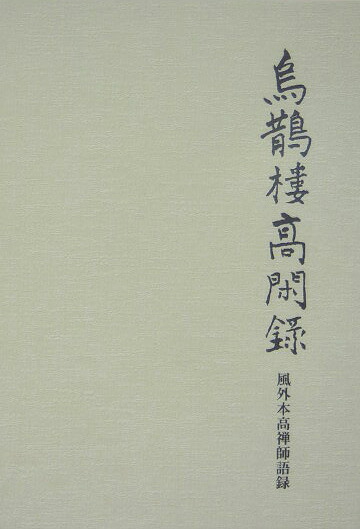 烏鵲楼高閑録
風外本高禅師語録